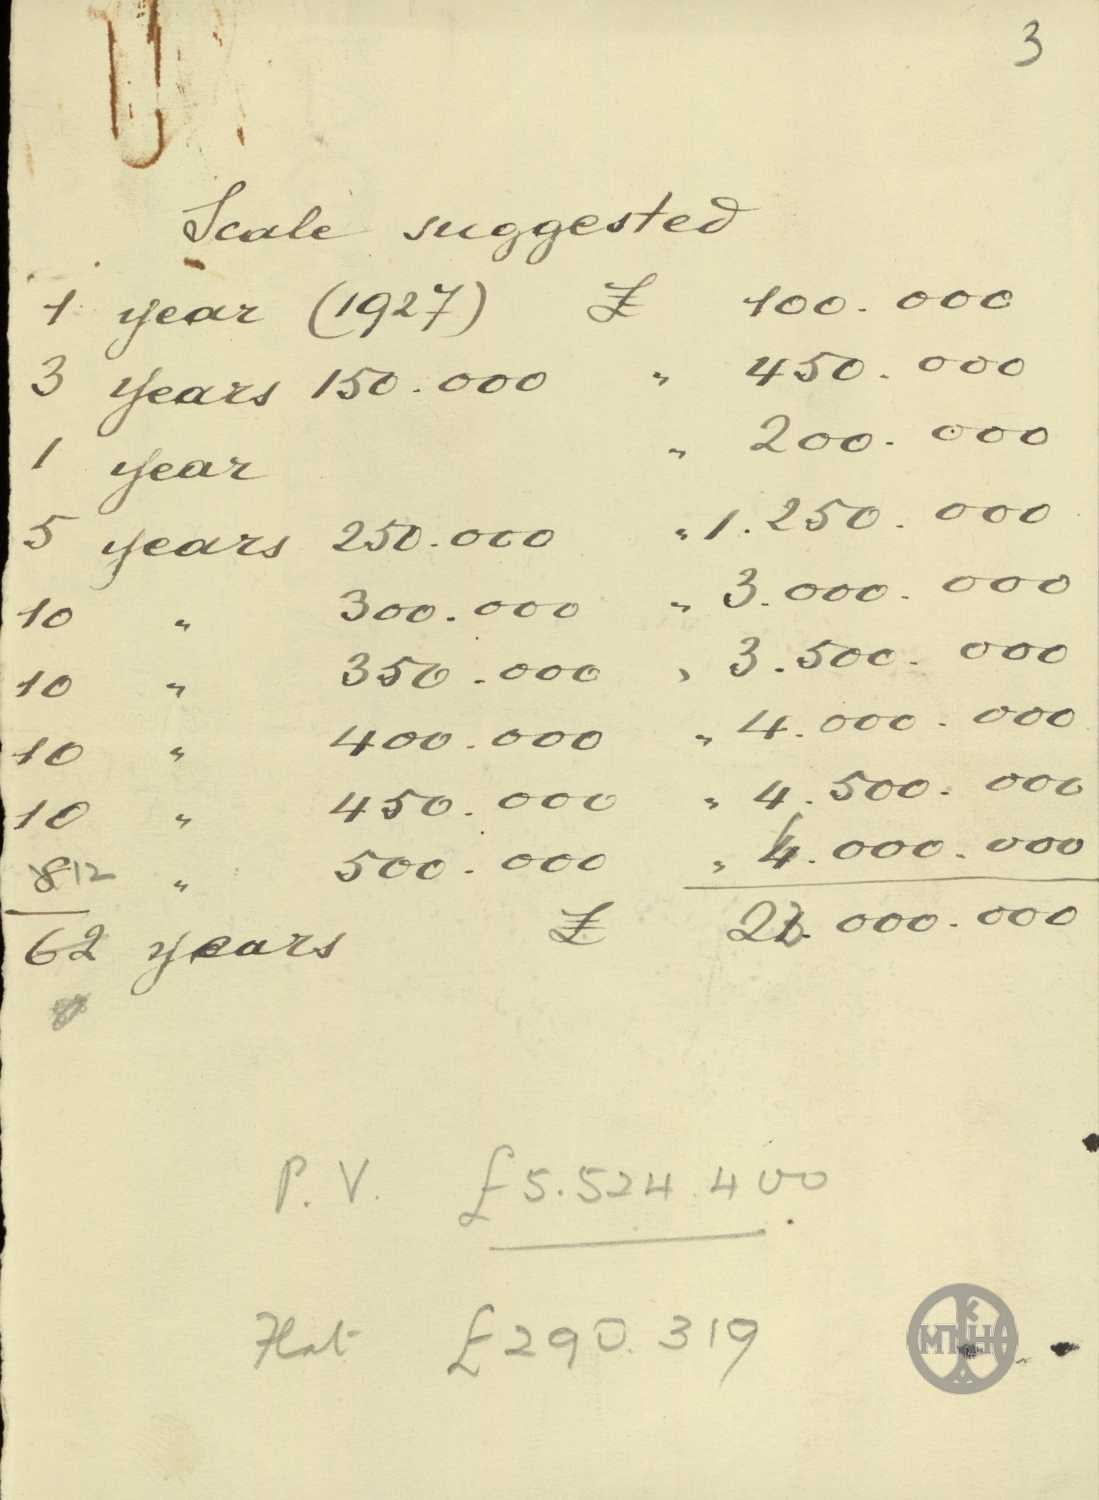 3
Scale suggested
1 year (1927) £ 100.000
3 years 150.000 " 450.000
1 year " 200.000
5 years 250.000 " 1.250.000
10 " 300.000 " 3.000.000
10 " 350.000 " 3.500.000
10 " 400.000 " 4.000.000
10 " 450.000 " 4.500.000
812 " 500.000 " 6.000.000
62 years £ 23.000.000
P.V. £5.524.400
Flat £290.319